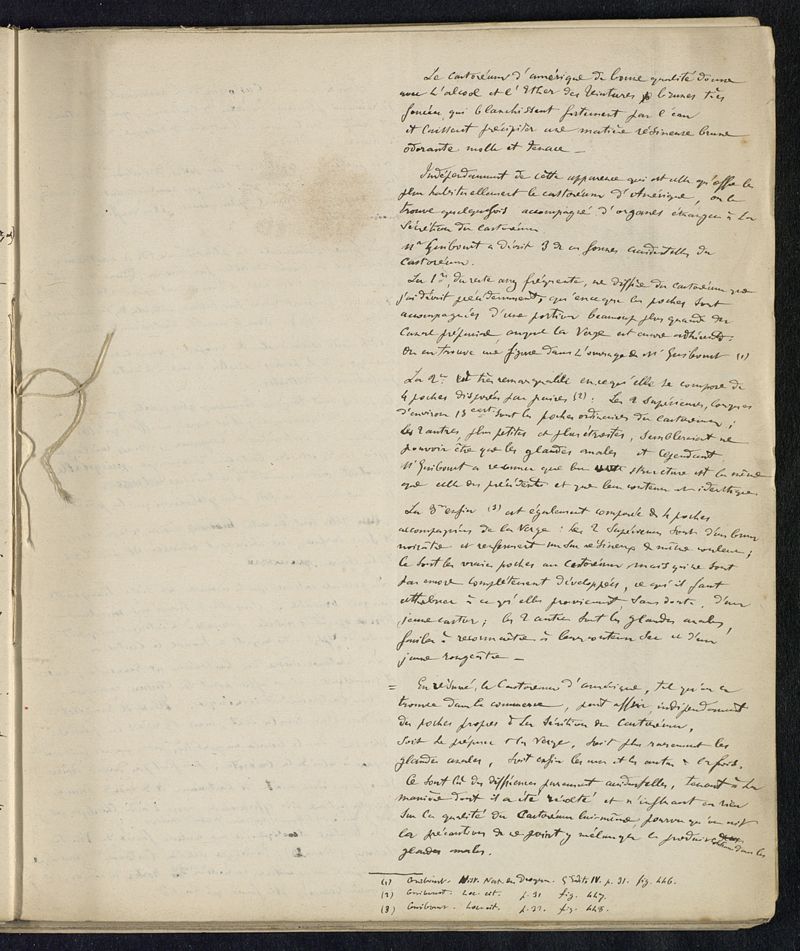 Le Castoréum d'Amérique de bonne qualité donne
avec l'alcool et l'Ether des teintures brunes très
foncées qui blanchissent fortement par l'eau
et laissent précipiter une matière résineuse brune
odorante molle et tenace —
Indépendamment de cette apparence qui est celle qu'offre le
plus habituellement le castoréum d'Amérique, on le
trouve quelquefois accompagné d'organes étrangers à la
Sécrétion du Castoréum
Mr Guibourt a décrit 3 de ces formes accidentelles du
Castoréum.
La 1re, du reste assez fréquente, ne diffère du Castoréum que
j'ai décrit précédemment, qu'en ce que les poches sont
accompagnées d'une portion beaucoup plus grande du
Canal préputial, auquel la Verge est encore adhérente.
On en trouve une figure dans l'ouvrage de Mr Guibourt (1)
La 2e est très remarquable en ce qu'elle se compose de
4 poches disposées par paires (2) : Les 2 supérieures, longues
d'environ 13 cent sont les poches ordinaires du Castoréum ;
les 2 autres, plus petites et plus étroites, sembleraient ne
pouvoir être que les glandes anales et cependant
Mr Guibourt a reconnu que leur structure est la même
que celle des précédentes et que leur contenu est identique.
La 3e enfin (3) est également composée de 4 poches
accompagnées de la Verge : les 2 supérieures sont d'un brun
noirâtre et renferment un suc résineux de même couleur ;
ce sont les vraies poches au Castoréum mais qui ne sont
pas encore complètement développées, ce qu'il faut
attribuer à ce qu'elles proviennent, sans doute, d'un
jeune castor ; les 2 autres sont les glandes anales,
faciles à reconnaître à leur contenu sec et d'un
jaune rougeâtre —
= En résumé, le Castoréum d'Amérique, tel qu'on le
trouve dans le commerce, peut offrir, indépendamment
des poches propres à la Sécrétion du Castoréum,
soit le prépuce et la Verge, soit plus rarement les
glandes anales, soit enfin les unes et les autres à la fois.
Ce sont là des différences purement accidentelles, tenant à la
manière dont il a été récolté et n'influant en rien
sur la qualité du Castoréum lui-même, pourvu qu'on ait
la précaution de ne point y mélanger le produit contenu dans les
glandes anales.
(1) Guibourt. Hist. Nat. des Drogues. Edit. IV. p. 31. fig. 446.
(2) Guibourt. Loc. cit. p. 31 fig. 447.
(3) Guibourt. Loc. cit. p. 32. fig. 448.